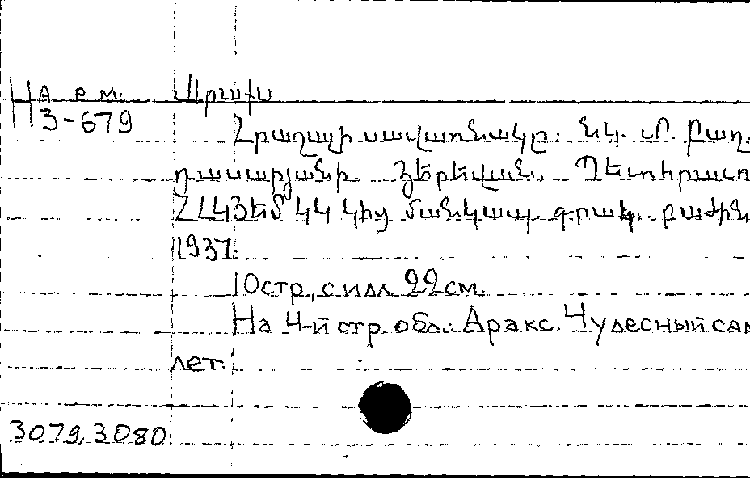 На арм. Արաքս
3-679
Հրաշալի սավառնակը. նկ. Մ. Բաղ.
դասարյանի Յերեվան. Պետհրատ
ՀԼԿՅԵՄ ԿԿ կից մանկապ. գրակ. բաժին
1937.
10 стр., с илл. 22 см.
На 4-й стр. обл.: Аракс. Чудесный сам
лет.
3079, 3080